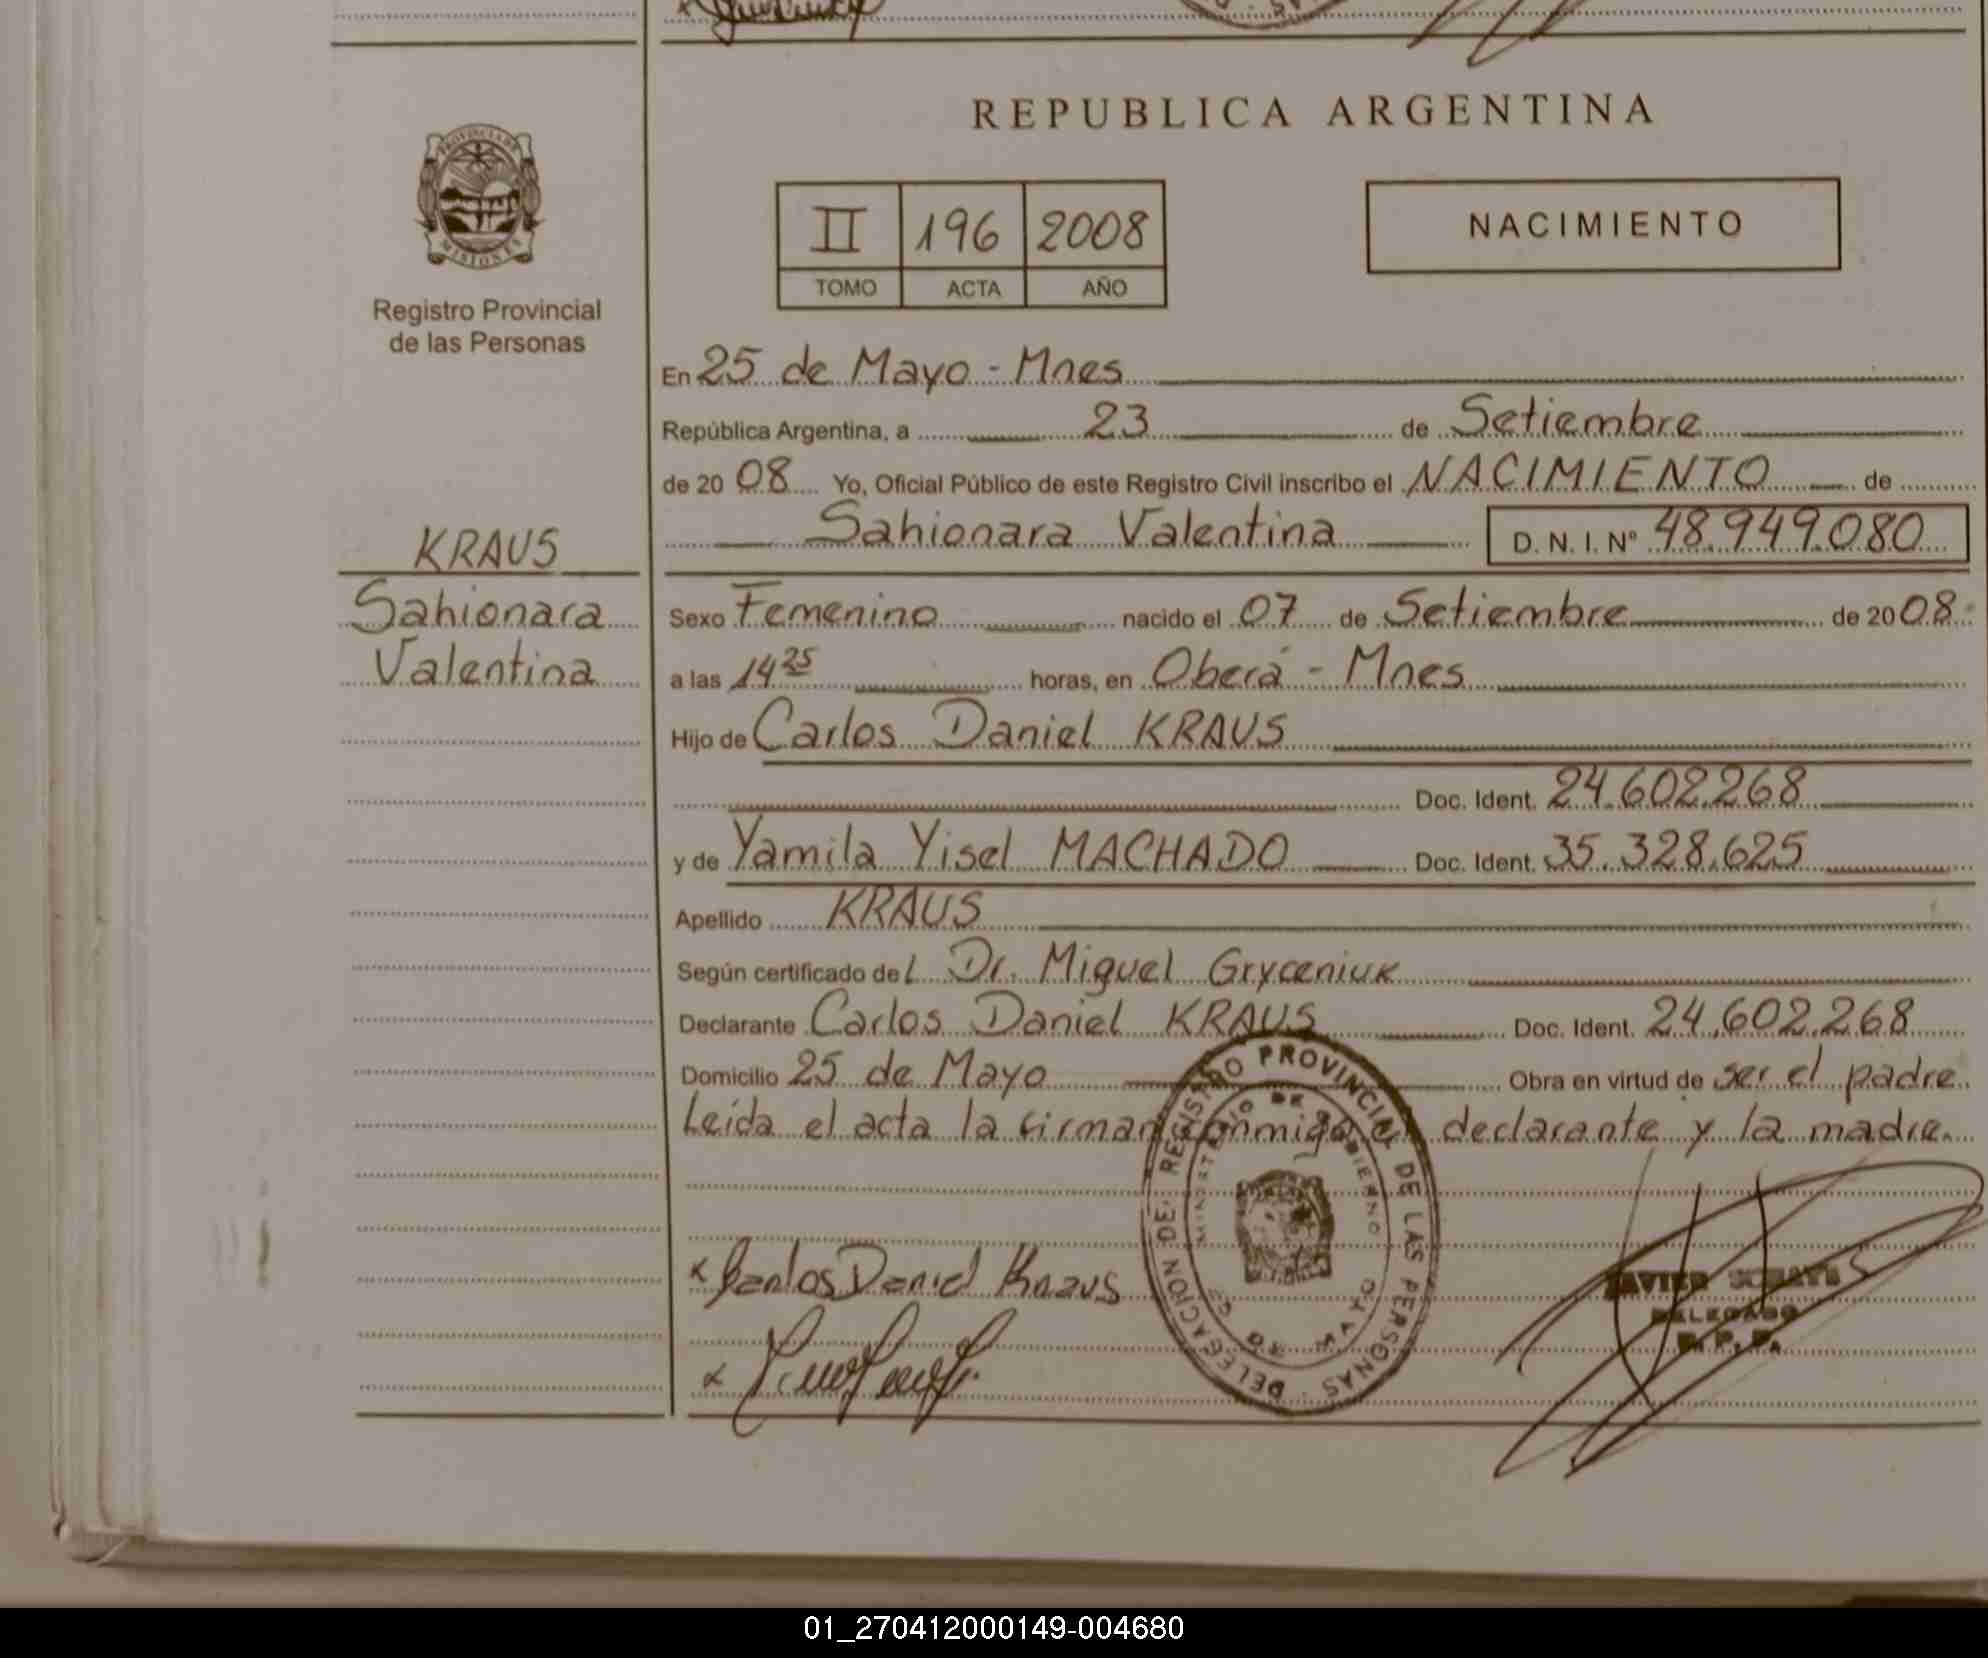 REPUBLICA ARGENTINA
PROVINCIA DE
MISIONES
Registro Provincial
de las Personas
II 196 2008
TOMO ACTA AÑO
NACIMIENTO
En 25 de Mayo - Mnes
República Argentina, a 23 de Setiembre
de 20 08 Yo, Oficial Público de este Registro Civil inscribo el NACIMIENTO de
Sahionara Valentina D. N. I. Nº 48.949.080
KRAUS
Sahionara
Valentina
Sexo Femenino nacido el 07 de Setiembre de 20 08
a las 14 25 horas, en Oberá - Mnes
Hijo de Carlos Daniel KRAUS
Doc. Ident. 24.602.268
y de Yamila Yisel MACHADO Doc. Ident. 35.328.625
Apellido KRAUS
Según certificado del Dr. Miguel Gryceniuk
Declarante Carlos Daniel KRAUS Doc. Ident. 24.602.268
Domicilio 25 de Mayo Obra en virtud de ser el padre
Leída el acta la firman conmigo el declarante y la madre.
DELEGACION DEL REGISTRO PROVINCIAL DE LAS PERSONAS
MINISTERIO DE GOBIERNO
25 DE MAYO
x Carlos Daniel Kraus
x
JAVIER
DELEGADO
R. P. P.
01_270412000149-004680